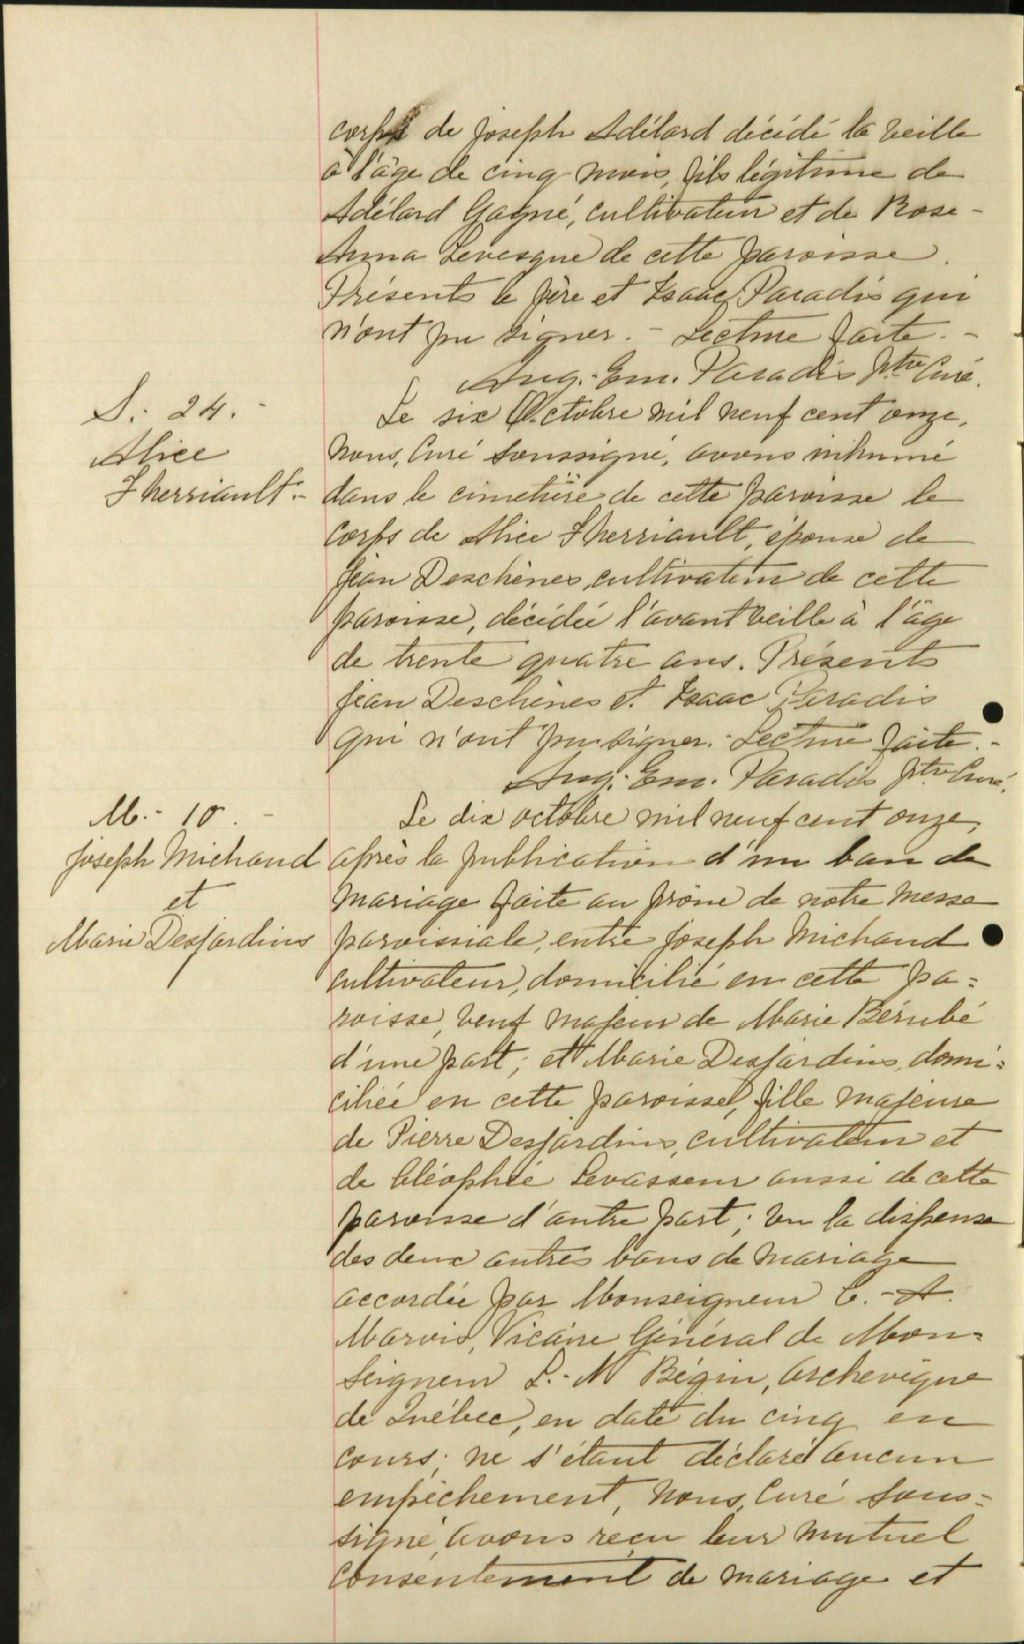 corps de Joseph Adélard décédé la veille
à l'âge de cinq mois, fils légitime de
Adélard Gagné, cultivateur et de Rose-
Anna Levesque de cette paroisse.
Présents le père et Isaac Paradis qui
n'ont pu signer. - Lecture faite. -
Aug.-Em. Paradis Ptre Curé.
S. 24. -
Alice
Therriault. -
Le six Octobre mil neuf cent onze,
nous, Curé soussigné, avons inhumé
dans le cimetière de cette paroisse le
corps de Alice Therriault, épouse de
Jean Deschènes, cultivateur de cette
paroisse, décédée l'avant veille à l'âge
de trente quatre ans. Présents
Jean Deschènes et Isaac Paradis
qui n'ont pu signer. - Lecture faite. -
Aug.-Em. Paradis ptre Curé.
M. - 10. -
Joseph Michaud
et
Marie Desjardins
Le dix octobre mil neuf cent onze,
après la publication d'un ban de
mariage faite au prône de notre messe
paroissiale, entre Joseph Michaud
cultivateur, domicilié en cette pa=
roisse, veuf majeur de Marie Bérubé
d'une part; et Marie Desjardins, domi=
ciliée en cette paroisse, fille majeure
de Pierre Desjardins, cultivateur et
de Cléophée Levasseur aussi de cette
paroisse d'autre part; vu la dispense
des deux autres bans de mariage
accordée par Monseigneur C.-A.
Marois, Vicaire Général de Mon=
seigneur L.-N Bégin, archevêque
de Québec, en date du cinq en
cours; ne s'étant déclaré aucun
empêchement, nous, Curé sous=
signé, avons reçu leur mutuel
consentement de mariage et